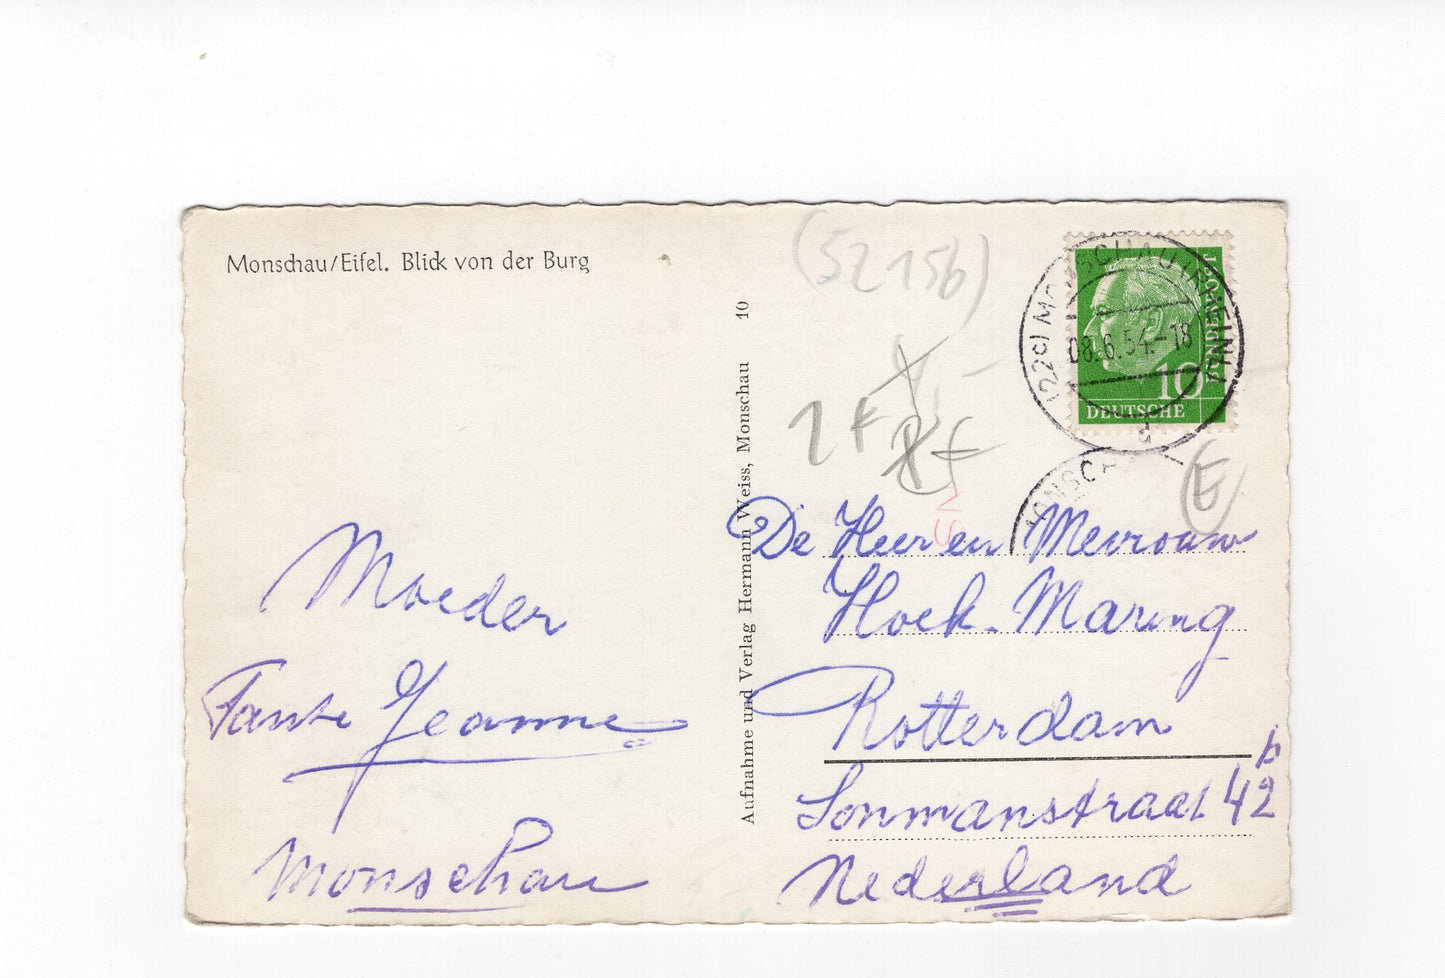 Monschau/Eifel. Blick von der Burg
Moeder
Tante Jeanne
Monschau
Aufnahme und Verlag Hermann Weiss, Monschau 10
(52156)
1 F
(22c) MONSCHAU (RHEINL)
08.6.54.-18
d
DEUTSCHE
BUNDESPOST
10
MONSCHA
E
De Heer en Mevrouw
Hoek-Maring
Rotterdam
Sonmanstraat 42 b
Nederland